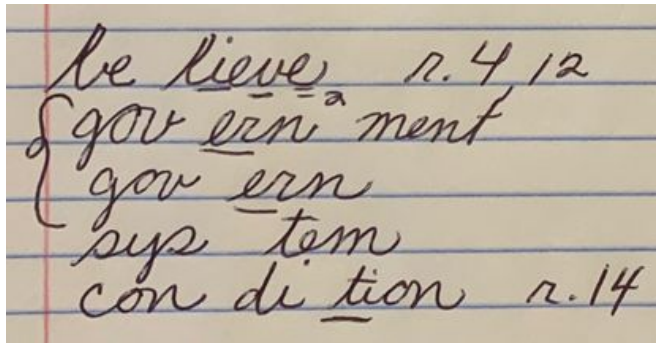 be lieve₂ r. 4, 12
gov ern ment
gov ern
sys tem
con di tion r. 14